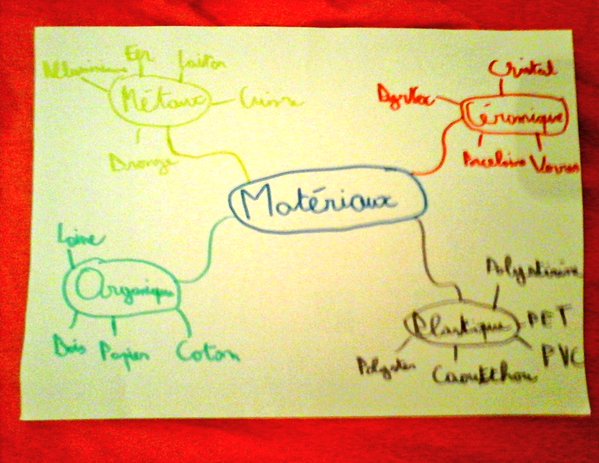 Matériaux
Métaux
Alluminium
Fer
Laiton
Cuivre
Bronze
Céramique
Cristal
Pyrex
Porcelaine
Verres
Organique
Laine
Bois
Papier
Coton
Plastique
Polystirène
PET
PVC
Caoutthou
Polyster